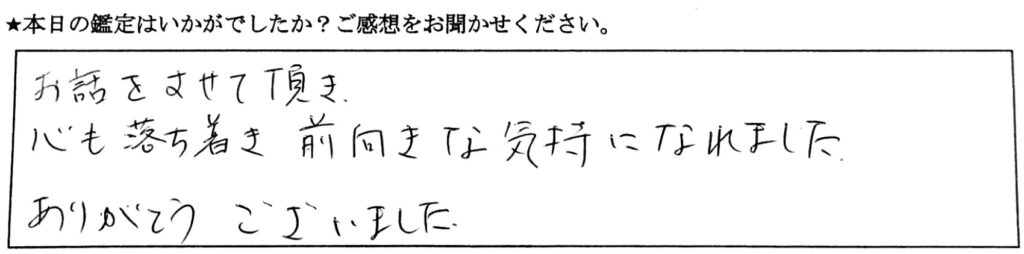 ★本日の鑑定はいかがでしたか？ご感想をお聞かせください。
お話をさせて頂き、
心も落ち着き 前向きな気持になれました。
ありがとう ございました。